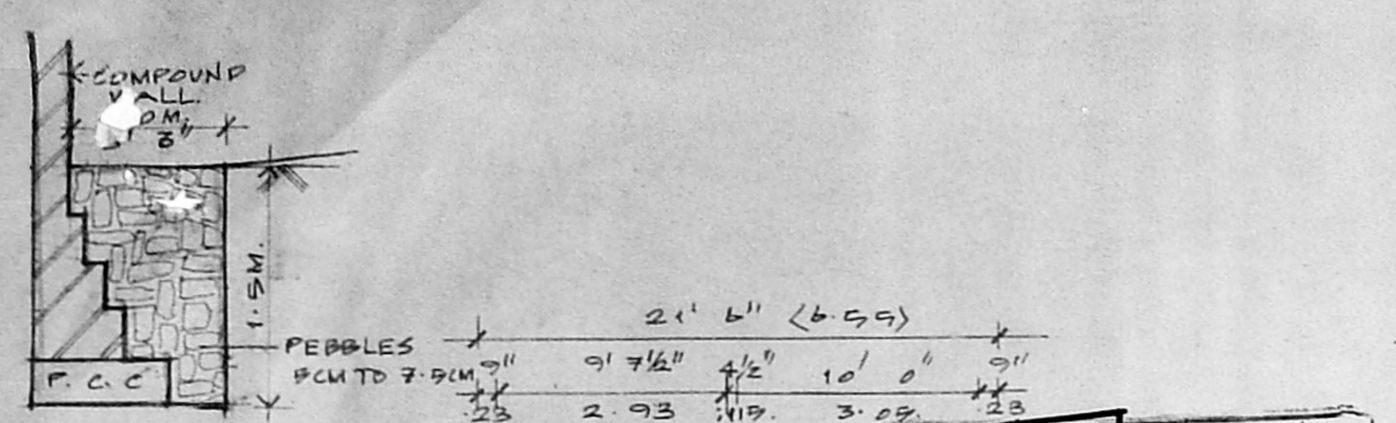 COMPOUND
WALL.
3"
1.5M.
PEBBLES
5CM TO 7.5CM
P. C. C
21' 6" (6.55)
9" 9' 7½" 4½" 10' 0" 9"
.23 2.93 .115. 3.05. .23